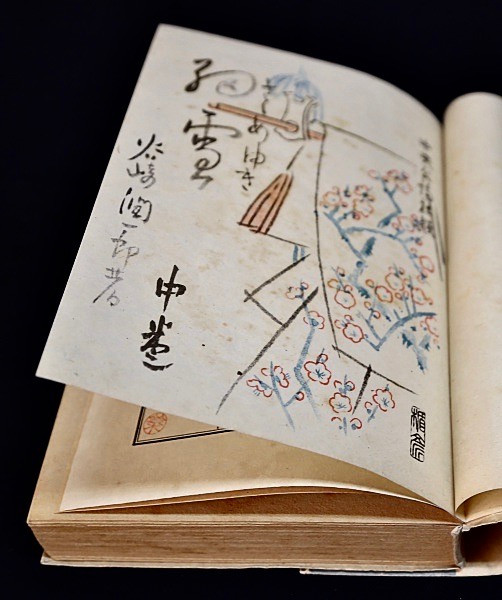 細雪
ささめゆき
谷崎潤一郎著
中巻